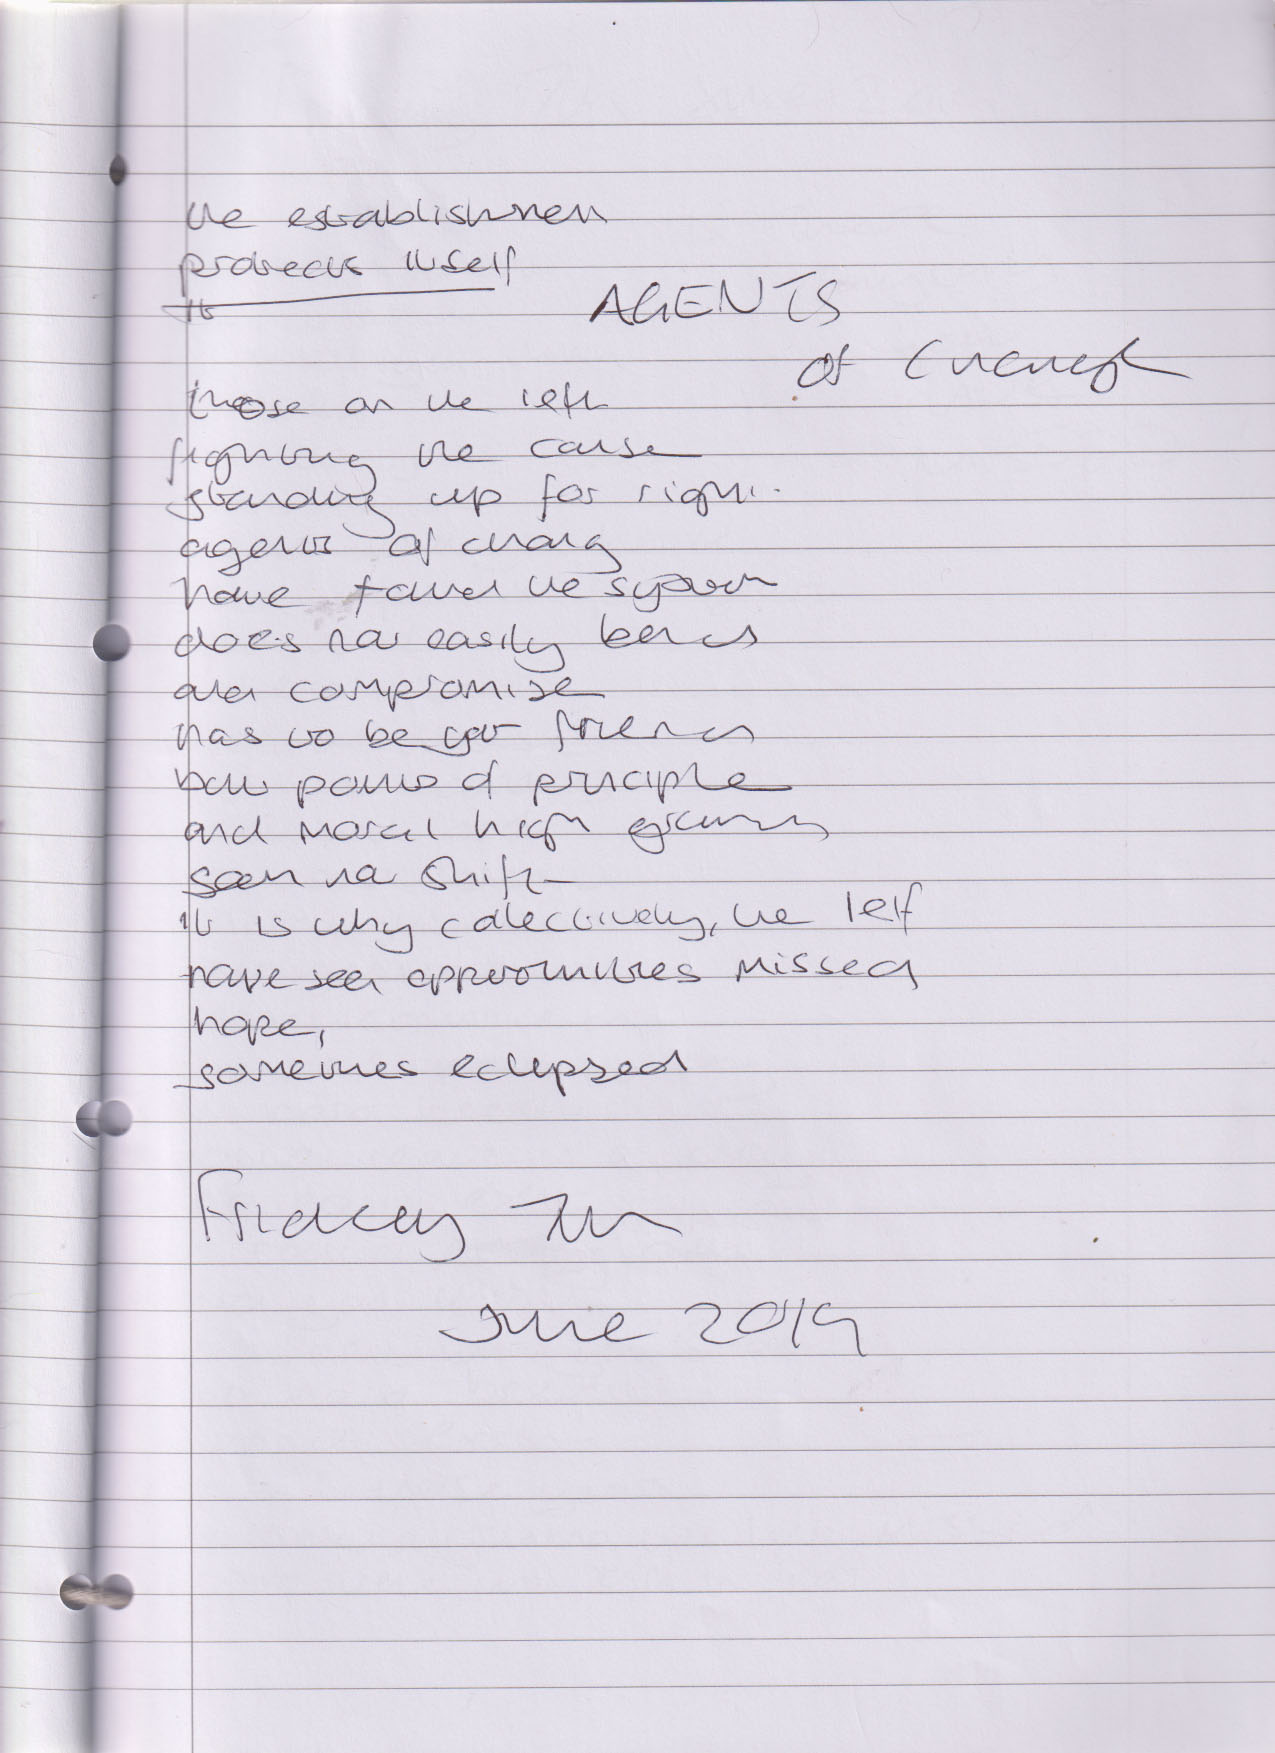 the establishment
protects itself
It
AGENTS
of Change
those on the left
fighting the cause
standing up for right.
agents of change
have found the system
does not easily bend
and compromise
has to be got friends
but points of principle
and moral high ground
soon no shift
it is why collectively, the left
have seen opportunities missed
hope,
sometimes eclipsed
June 2019